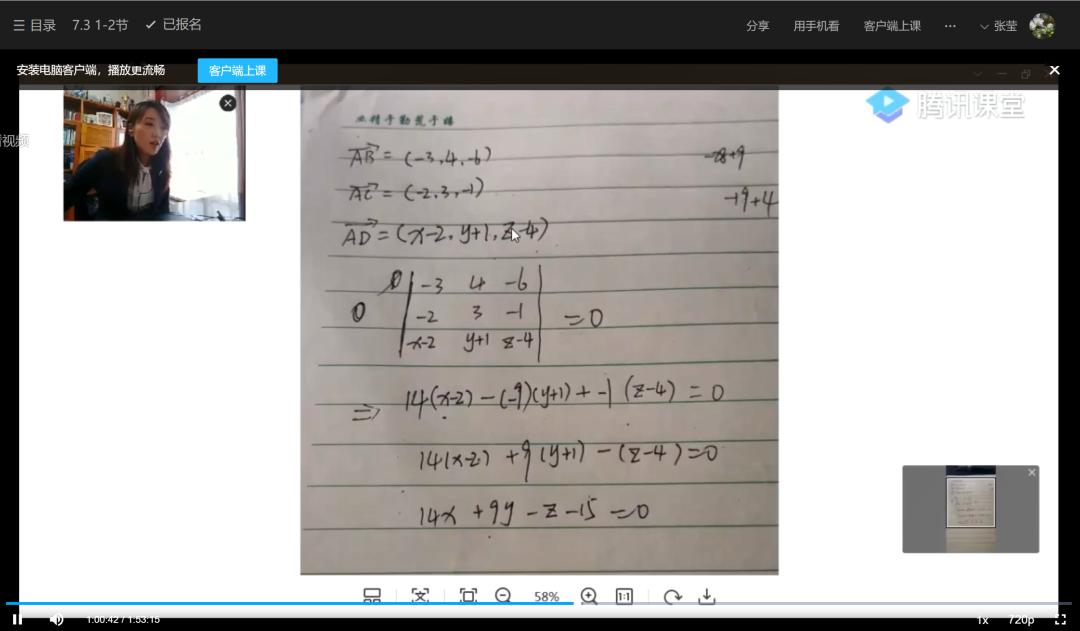 ☰ 目录 7.3 1-2节 ✓ 已报名 分享 用手机看 客户端上课 ··· 张莹
安装电脑客户端，播放更流畅 客户端上课
视频
腾讯课堂
业精于勤荒于嬉
AB = (-3,4,-6)
-28+9
AC = (-2,3,-1)
-19+4
AD = (x-2, y+1, z-4)
0 | -3 4 -6 |
0 | -2 3 -1 | =0
| x-2 y+1 z-4 |
⇒ 14(x-2) - (-9)(y+1) + -1 (z-4) = 0
14(x-2) + 9(y+1) - (z-4) =0
14x + 9y - z -15 =0
58% 1:1
1:00:42 / 1:53:15 1x 720p